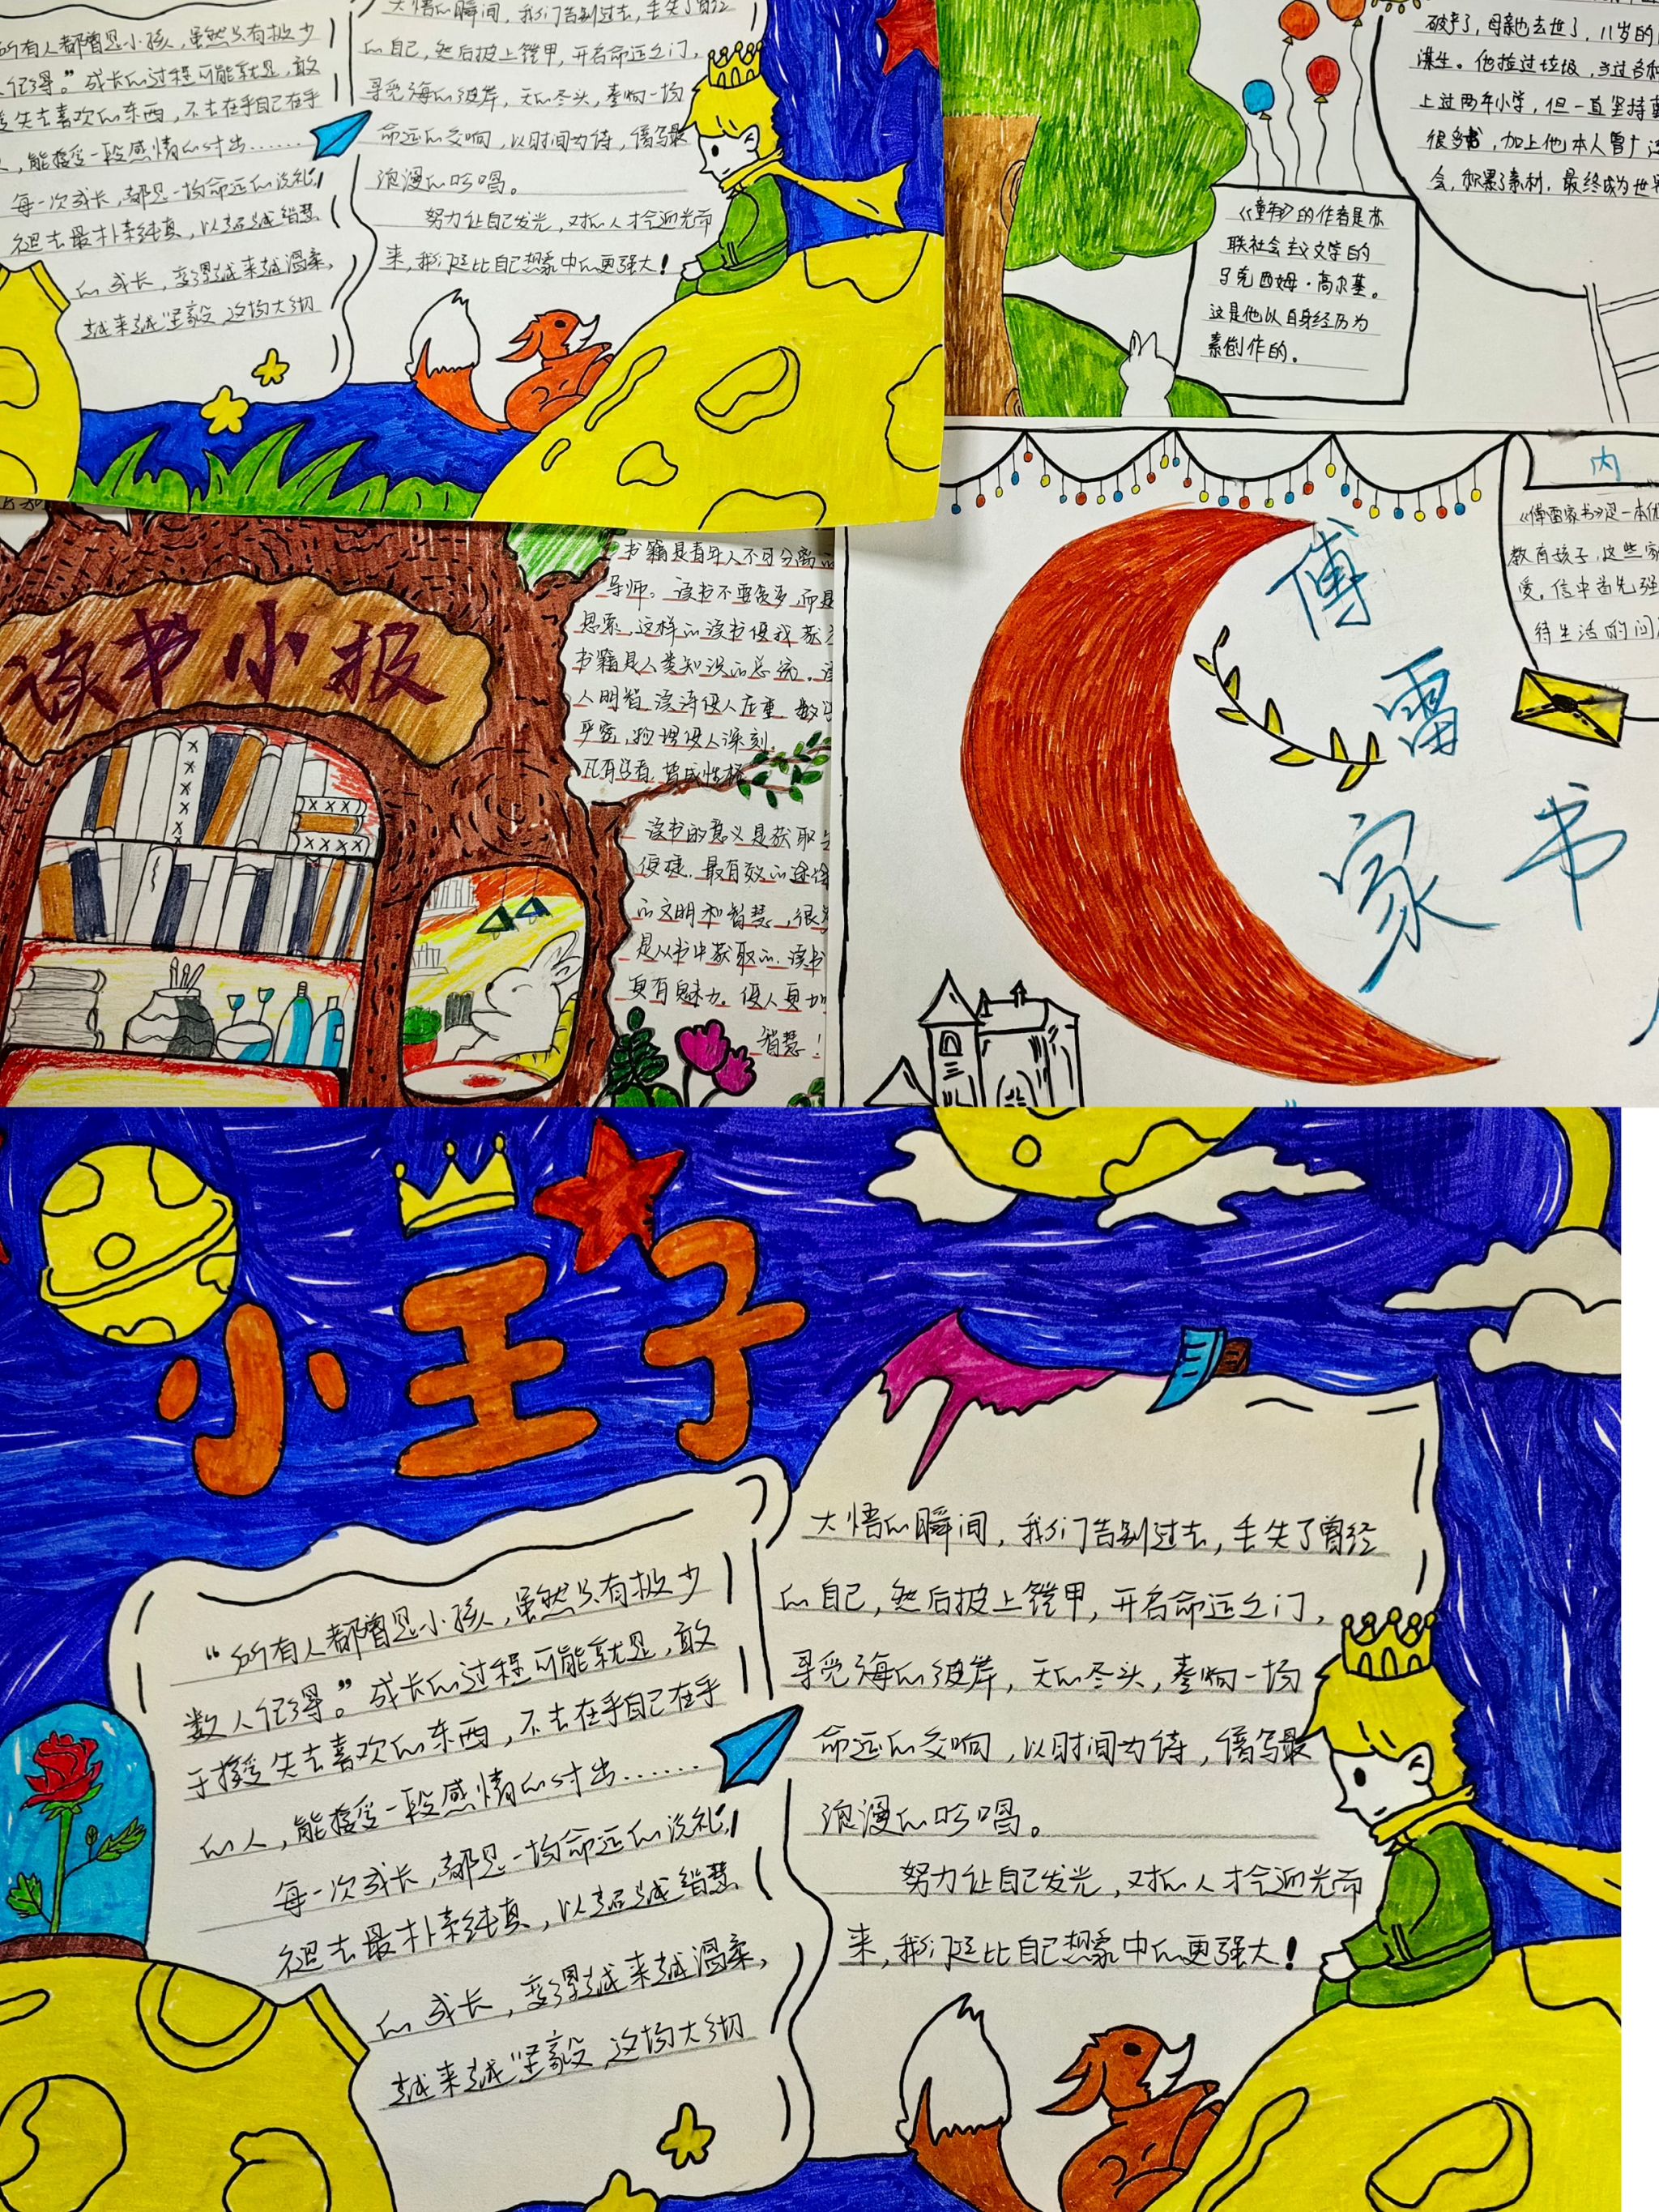 所有人都曾是小孩，虽然只有极少
人记得。”成长的过程可能就是，敢
失去喜欢的东西，不去在乎自己在乎
，能接受一段感情的付出……
每一次成长，都是一场命运的洗礼，
褪去最朴素纯真，以超越智慧
的成长，变得越来越温柔，
越来越坚毅，这场大彻
大悟的瞬间，我们告别过去，丢失了曾经
的自己，然后披上铠甲，开启命运之门，
寻觅海的彼岸，天的尽头，奏响一场
命运的交响，以时间为诗，谱写最
浪漫的吟唱。
努力让自己发光，对的人才会迎光而
来，我们远比自己想象中的更强大！
破产了，母亲也去世了，11岁的
谋生。他捡过垃圾，当过各种
上过两年小学，但一直坚持
很多书，加上他本人曾广泛
会，积累了素材，最终成为世界
《童年》的作者是苏
联社会主义文学的
马克西姆·高尔基。
这是他以自身经历为
素创作的。
读书小报
书籍是青年人不可分离的
导师。读书不要贪多，而是
思索，这样的读书使我获
书籍是人类知识的总统。读
人明智，读诗使人庄重，数学
严密，物理使人深刻，
凡有所有，皆成性格
读书的意义是获取
便捷、最有效的途径
的文明和智慧，很多
是从书中获取的。读书
更有魅力。使人更加
智慧！
内
《傅雷家书》是一本优
教育孩子，这些家
爱。信中首先强
待生活的问
傅雷家书
小王子
“所有人都曾是小孩，虽然只有极少
数人记得。”成长的过程可能就是，敢
于接受失去喜欢的东西，不去在乎自己在乎
的人，能接受一段感情的付出……
每一次成长，都是一场命运的洗礼，
褪去最朴素纯真，以超越智慧
的成长，变得越来越温柔，
越来越坚毅，这场大彻
大悟的瞬间，我们告别过去，丢失了曾经
的自己，然后披上铠甲，开启命运之门，
寻觅海的彼岸，天的尽头，奏响一场
命运的交响，以时间为诗，谱写最
浪漫的吟唱。
努力让自己发光，对的人才会迎光而
来，我们远比自己想象中的更强大！